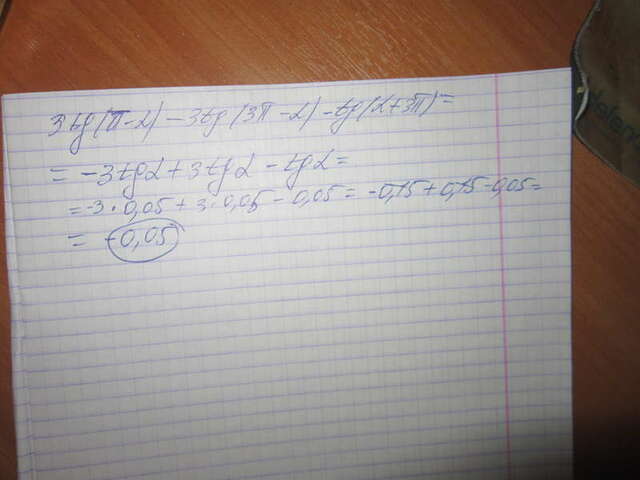 3tg(π-α)-3tg(3π-α)-tg(α+3π)=
= -3tgα+3tgα-tgα=
=-3·0,05+3·0,05-0,05=-0,15+0,15-0,05=
= -0,05